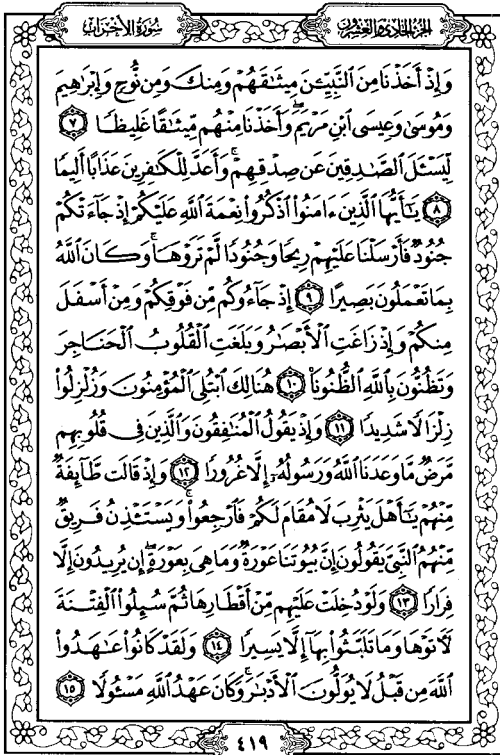 سُورَةُ الأَحْزَابِ الجُزْءُ الحَادِي وَالعِشْرُونَ
وَإِذْ أَخَذْنَا مِنَ ٱلنَّبِيِّـۧنَ مِيثَٰقَهُمْ وَمِنكَ وَمِن نُّوحٍ وَإِبْرَٰهِيمَ
وَمُوسَىٰ وَعِيسَى ٱبْنِ مَرْيَمَ ۖ وَأَخَذْنَا مِنْهُم مِّيثَٰقًا غَلِيظًا ٧
لِّيَسْـَٔلَ ٱلصَّٰدِقِينَ عَن صِدْقِهِمْ ۚ وَأَعَدَّ لِلْكَٰفِرِينَ عَذَابًا أَلِيمًا
٨ يَٰٓأَيُّهَا ٱلَّذِينَ ءَامَنُوا۟ ٱذْكُرُوا۟ نِعْمَةَ ٱللَّهِ عَلَيْكُمْ إِذْ جَآءَتْكُمْ
جُنُودٌ فَأَرْسَلْنَا عَلَيْهِمْ رِيحًا وَجُنُودًا لَّمْ تَرَوْهَا ۚ وَكَانَ ٱللَّهُ
بِمَا تَعْمَلُونَ بَصِيرًا ٩ إِذْ جَآءُوكُم مِّن فَوْقِكُمْ وَمِنْ أَسْفَلَ
مِنكُمْ وَإِذْ زَاغَتِ ٱلْأَبْصَٰرُ وَبَلَغَتِ ٱلْقُلُوبُ ٱلْحَنَاجِرَ
وَتَظُنُّونَ بِٱللَّهِ ٱلظُّنُونَا۠ ١٠ هُنَالِكَ ٱبْتُلِىَ ٱلْمُؤْمِنُونَ وَزُلْزِلُوا۟
زِلْزَالًا شَدِيدًا ١١ وَإِذْ يَقُولُ ٱلْمُنَٰفِقُونَ وَٱلَّذِينَ فِى قُلُوبِهِم
مَّرَضٌ مَّا وَعَدَنَا ٱللَّهُ وَرَسُولُهُۥٓ إِلَّا غُرُورًا ١٢ وَإِذْ قَالَت طَّآئِفَةٌ
مِّنْهُمْ يَٰٓأَهْلَ يَثْرِبَ لَا مُقَامَ لَكُمْ فَٱرْجِعُوا۟ ۚ وَيَسْتَـْٔذِنُ فَرِيقٌ
مِّنْهُمُ ٱلنَّبِىَّ يَقُولُونَ إِنَّ بُيُوتَنَا عَوْرَةٌ وَمَا هِىَ بِعَوْرَةٍ ۖ إِن يُرِيدُونَ إِلَّا
فِرَارًا ١٣ وَلَوْ دُخِلَتْ عَلَيْهِم مِّنْ أَقْطَارِهَا ثُمَّ سُئِلُوا۟ ٱلْفِتْنَةَ
لَـَٔاتَوْهَا وَمَا تَلَبَّثُوا۟ بِهَآ إِلَّا يَسِيرًا ١٤ وَلَقَدْ كَانُوا۟ عَٰهَدُوا۟
ٱللَّهَ مِن قَبْلُ لَا يُوَلُّونَ ٱلْأَدْبَٰرَ ۚ وَكَانَ عَهْدُ ٱللَّهِ مَسْـُٔولًا ١٥
٤١٩